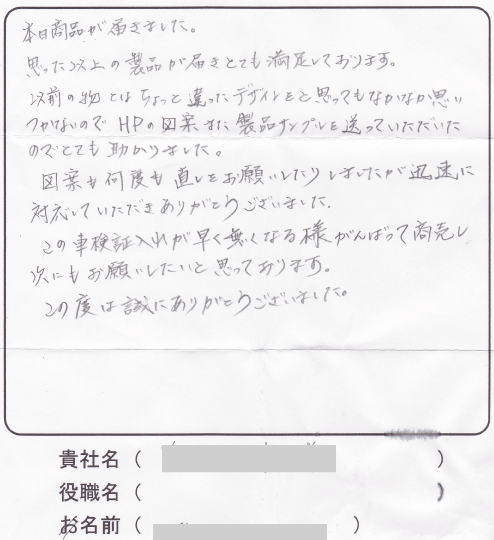 本日商品が届きました。
思った以上の製品が届きとても満足しております。
以前の物とはちょっと違ったデザインをと思ってもなかなか思い
つかないので HPの図案また製品サンプルを送っていただいた
のでとても助かりました。
図案も何度も直しをお願いしたりしましたが迅速に
対応していただきありがとうございました。
この車検証入れが早く無くなる様がんばって商売し
次にもお願いしたいと思っております。
この度は誠にありがとうございました。
貴社名（ ）
役職名（ ）
お名前（ ）